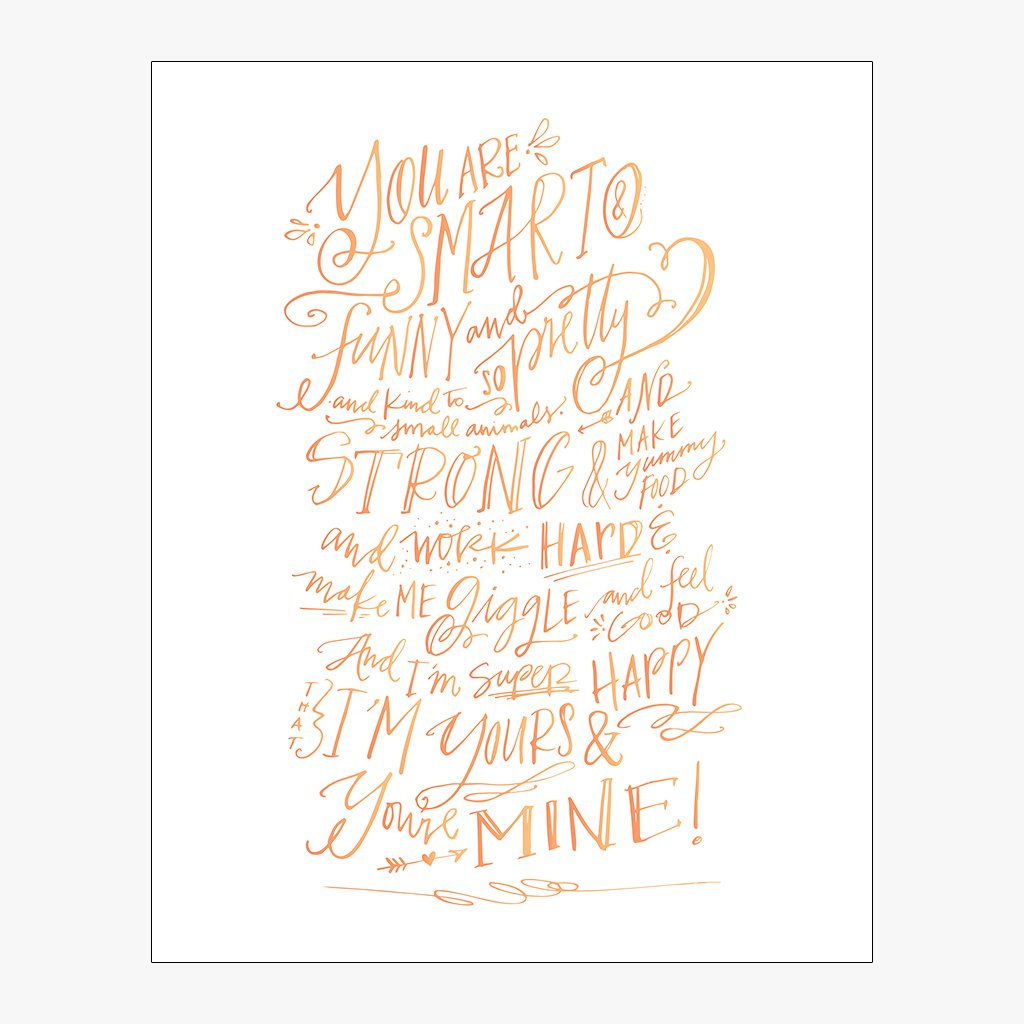 You ARE
SMART &
FUNNY and so pretty
and kind to
small animals.
AND
STRONG &
MAKE
yummy
FOOD
and work HARD &
make ME giggLE and feel
GOOD
And I'm super HAPPY
THAT
I'M YOURS &
You're MINE!